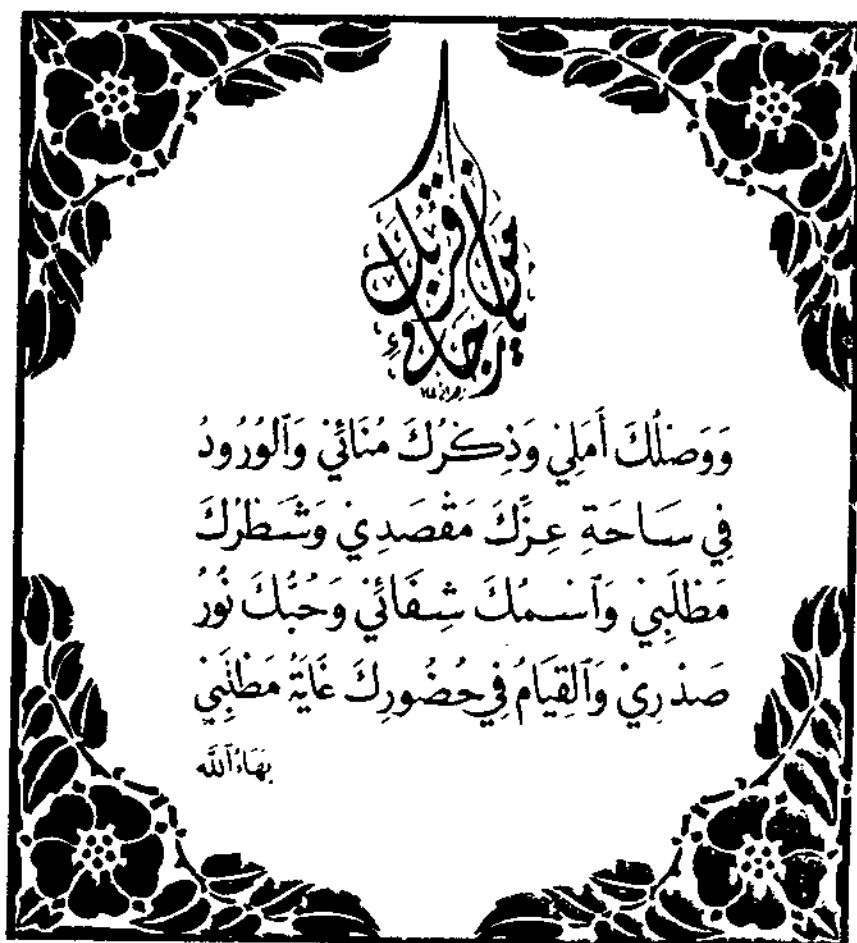 يا من قربك رجائي
وَوَصْلُكَ أَمَلِيْ وَذِكْرُكَ مُنَائِيْ وَٱلوُرُودُ
فِي سَاحَةِ عِزِّكَ مَقْصَدِيْ وَشَطْرُكَ
مَطْلَبِيْ وَٱسْمُكَ شِفَائِيْ وَحُبُّكَ نُورُ
صَدْرِيْ وَٱلقِيَامُ فِي حُضُورِكَ غَايَةُ مَطْلَبِيْ
بَهَاءُٱللَّه